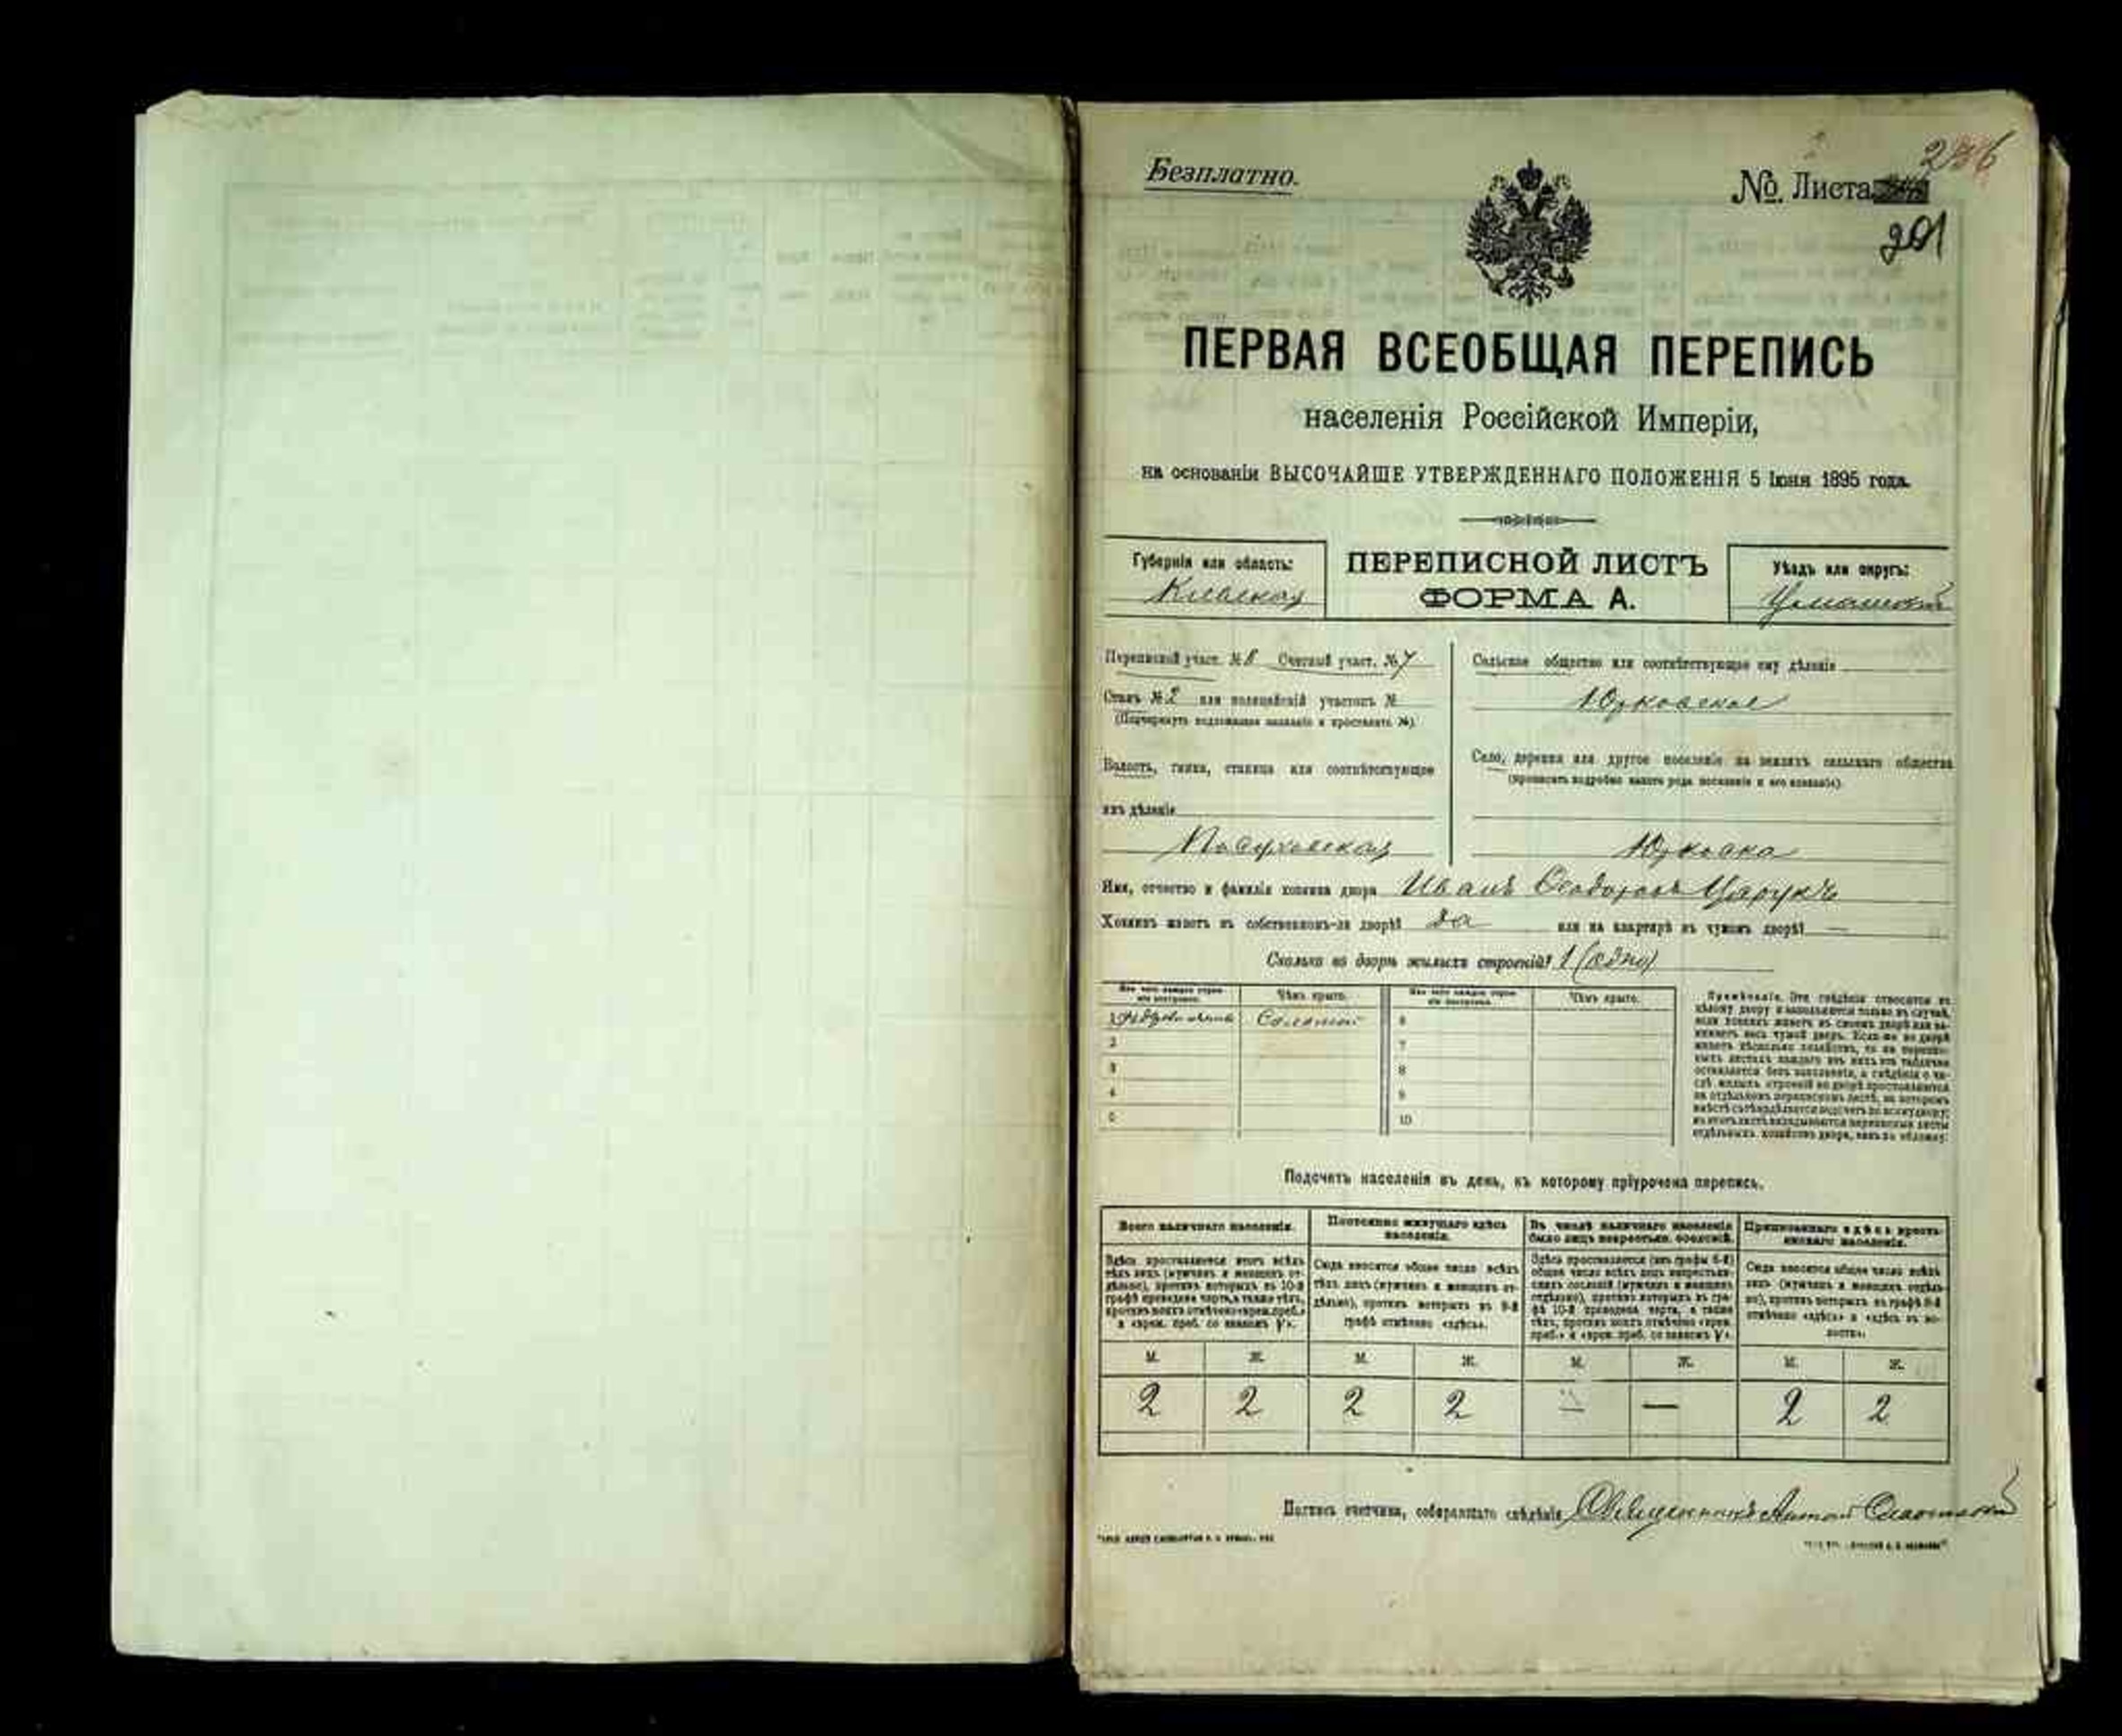 Безплатно.
№ Листа
236
201
ПЕРВАЯ ВСЕОБЩАЯ ПЕРЕПИСЬ
населенія Россійской Имперіи,
на основаніи ВЫСОЧАЙШЕ УТВЕРЖДЕННАГО ПОЛОЖЕНІЯ 5 Іюня 1895 года.
Губернія или область:
Кіевская
ПЕРЕПИСНОЙ ЛИСТЪ
ФОРМА А.
Уѣздъ или округъ:
Уманскій
Переписной участ. № 8 Счетный участ. № 7
Станъ № 2 или полицейскій участокъ №
(Подчеркнуть подлежащее названіе и проставить №).
Волость, гмина, станица или соотвѣтствующее
имъ дѣленіе
Посуховская
Сельское общество или соотвѣтствующее ему дѣленіе
Юрковское
Село, деревня или другое поселеніе на земляхъ сельскаго общества
(прописать подробно какого рода поселеніе и его названіе).
Юрковка
Имя, отчество и фамилія хозяина двора Иванъ Феодоровъ Царукъ
Хозяинъ живетъ въ собственномъ-ли дворѣ? да или на квартирѣ въ чужомъ дворѣ? —
Сколько во дворѣ жилыхъ строеній? 1 (одно)
Изъ чего каждое строеніе построено.
Чѣмъ крыто.
Изъ чего каждое строеніе построено.
Чѣмъ крыто.
1 Соломой 6
2 7
3 8
4 9
5 10
Примѣчаніе. Эти свѣдѣнія относятся къ
цѣлому двору и заполняются только въ случаѣ,
если хозяинъ живетъ въ своемъ дворѣ или за-
нимаетъ весь чужой дворъ. Если-же во дворѣ
живетъ нѣсколько хозяйствъ, то на перепис-
ныхъ листахъ каждаго изъ нихъ эта табличка
оставляется безъ заполненія, а свѣдѣнія о чи-
слѣ жилыхъ строеній во дворѣ проставляются
на отдѣльномъ переписномъ листѣ, на которомъ
вмѣстѣ съ тѣмъ дѣлается подсчетъ по всему двору;
въ этотъ листъ вкладываются переписные листы
отдѣльныхъ хозяйствъ двора, какъ въ обложку.
Подсчетъ населенія въ день, къ которому пріурочена перепись.
Всего наличнаго населенія.
Здѣсь проставляется итогъ всѣхъ
тѣхъ лицъ (мужчинъ и женщинъ от-
дѣльно), противъ которыхъ въ 10-й
графѣ проведена черта, а также тѣхъ,
противъ коихъ отмѣчено «врем. преб.»
и «врем. преб. со знакомъ V».
Постоянно живущаго здѣсь
населенія.
Сюда вносится общее число всѣхъ
тѣхъ лицъ (мужчинъ и женщинъ от-
дѣльно), противъ которыхъ въ 9-й
графѣ отмѣчено «здѣсь».
Въ числѣ наличнаго населенія
было лицъ некрестьян. сословій.
Здѣсь проставляется (изъ графы 6-й)
общее число всѣхъ лицъ некрестьян-
скихъ сословій (мужчинъ и женщинъ
отдѣльно), противъ которыхъ въ гра-
фѣ 10-й проведена черта, а также
тѣхъ, противъ коихъ отмѣчено «врем.
преб.» и «врем. преб. со знакомъ V».
Приписаннаго здѣсь кресть-
янскаго населенія.
Сюда вносится общее число всѣхъ
лицъ (мужчинъ и женщинъ отдѣль-
но), противъ которыхъ въ графѣ 8-й
отмѣчено «здѣсь» и «здѣсь въ во-
лости».
М. Ж. М. Ж. М. Ж. М. Ж.
2 2 2 2 — — 2 2
Подпись счетчика, собиравшаго свѣдѣнія Священникъ Антоній